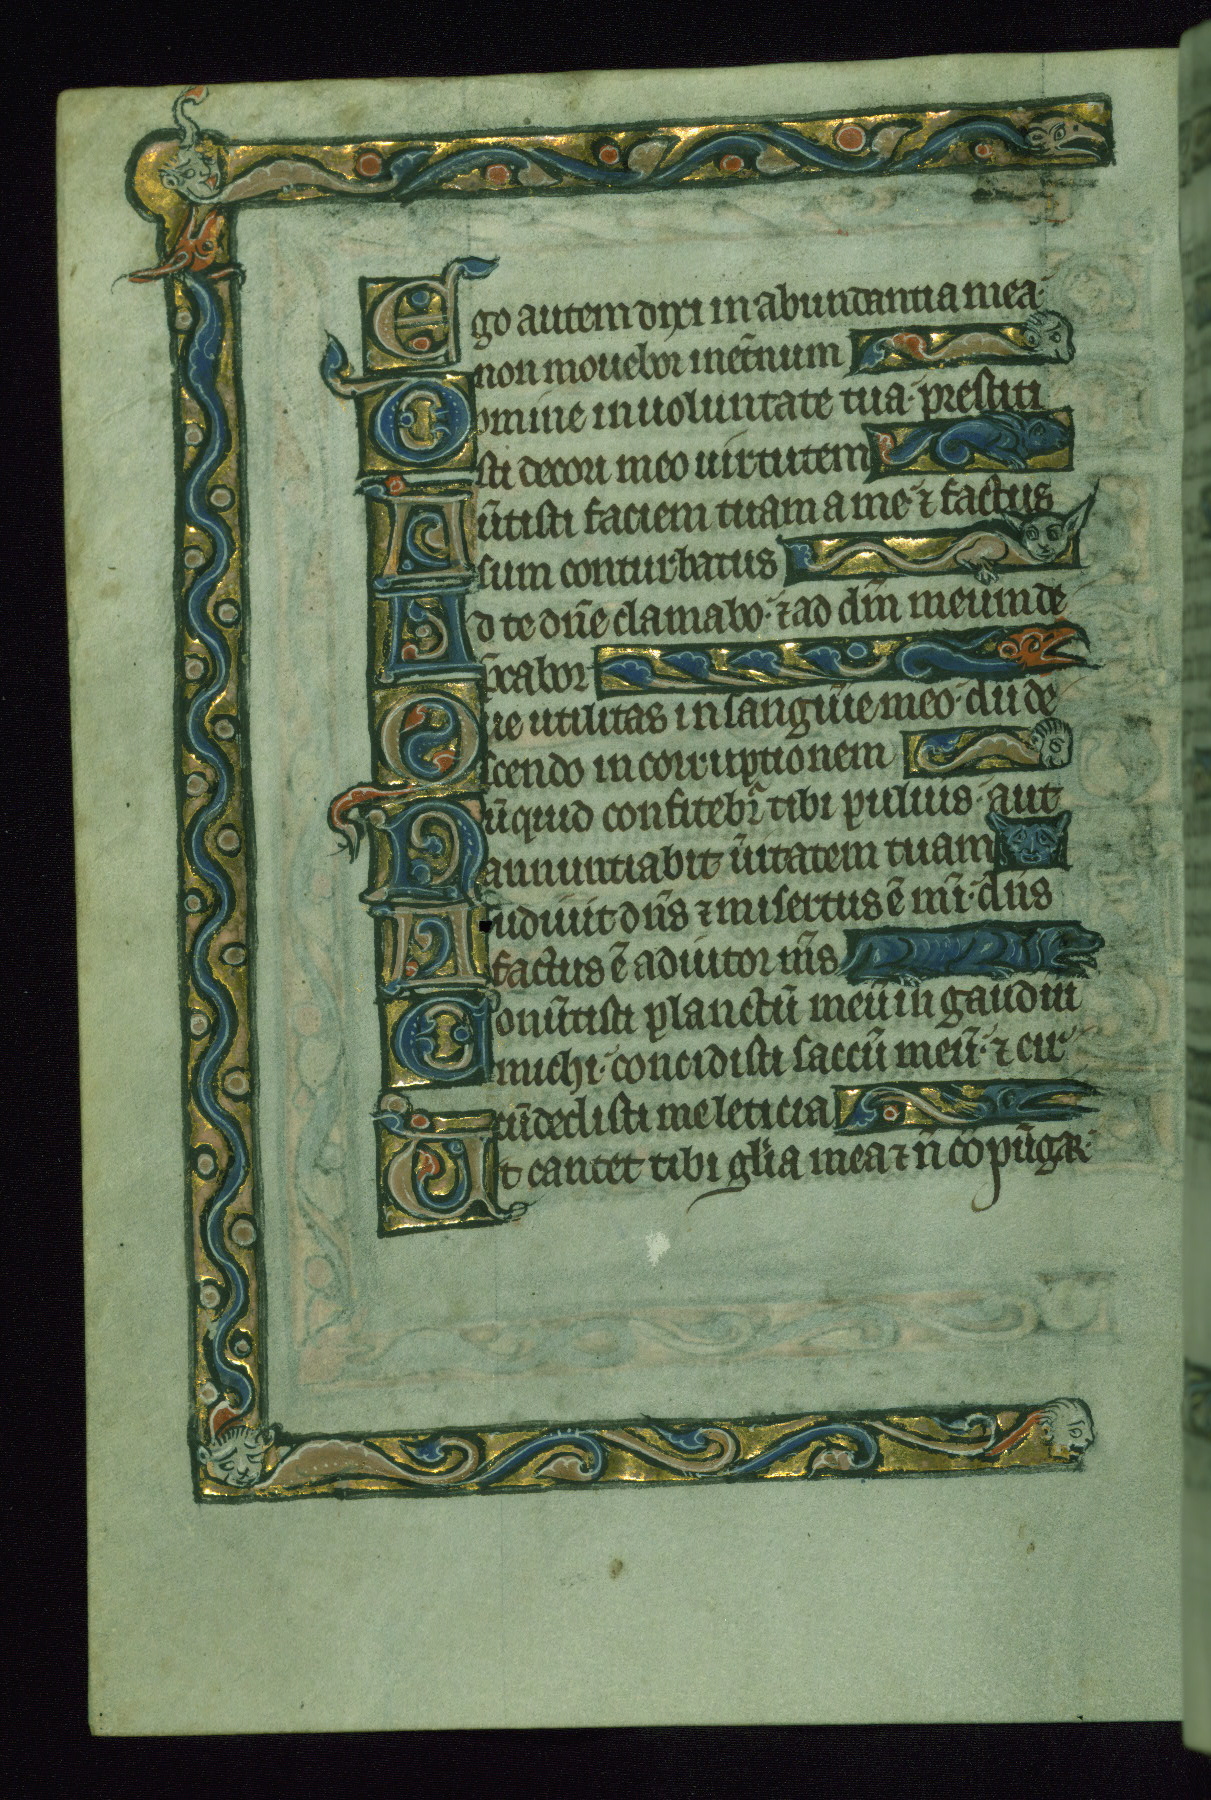 Ego autem dixi in abundantia mea·
non mouebor inet̄num
Domine in uoluntate tua· prestiti
sti decori meo uirtutem
Aūtisti faciem tuam a me· ⁊ factus
sum conturbatus
Ad te dn̄e clamabo· ⁊ ad dm̄ meum de
p̄cabor
Que utilitas in sanguīe meo· dū de
scendo in corruptionem
Nūquid confitebr̄ tibi puluis· aut
annuntiabit ūitatem tuam
Audiuit dn̄s ⁊ misertus ē m̄i· dn̄s
factus ē adiutor m̄s
Conūtisti planctū meū in gaudiū
michi· concidisti saccū meū· ⁊ cir
cūdedisti me leticia
Ut cantet tibi gl̄ia mea ⁊ n̄ cōpūgar·